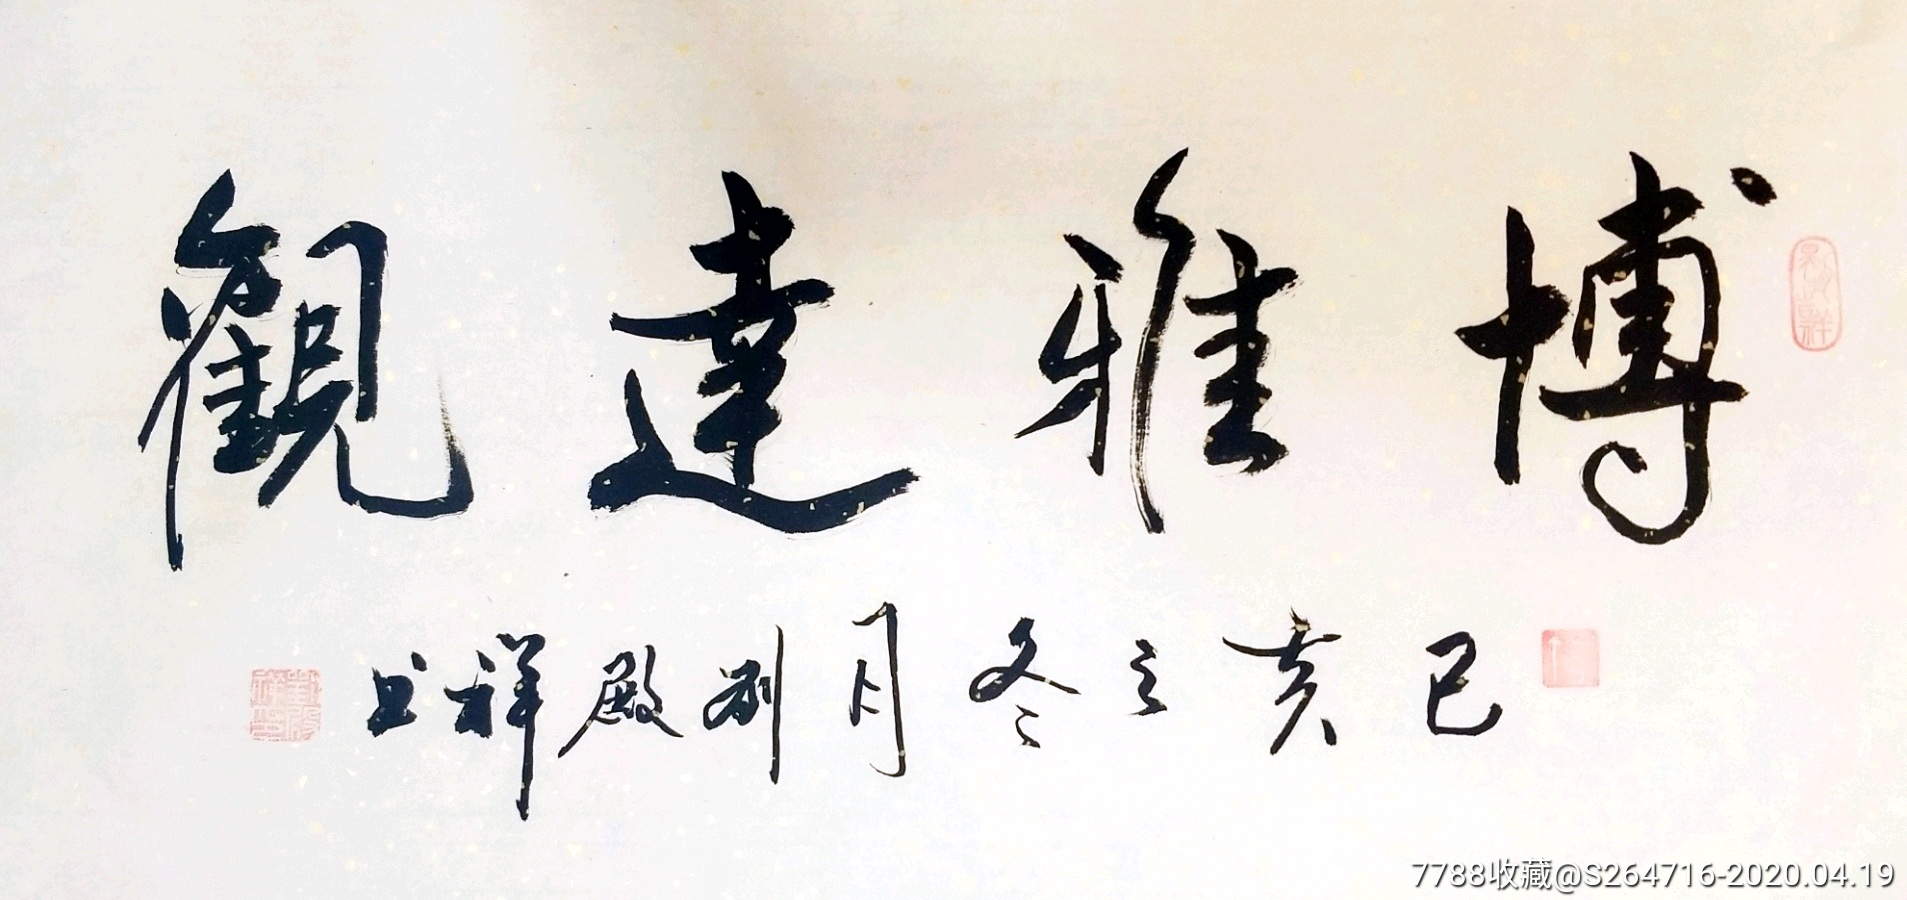 博雅達觀
己亥之冬月劉殿祥书
7788收藏@S264716-2020.04.19